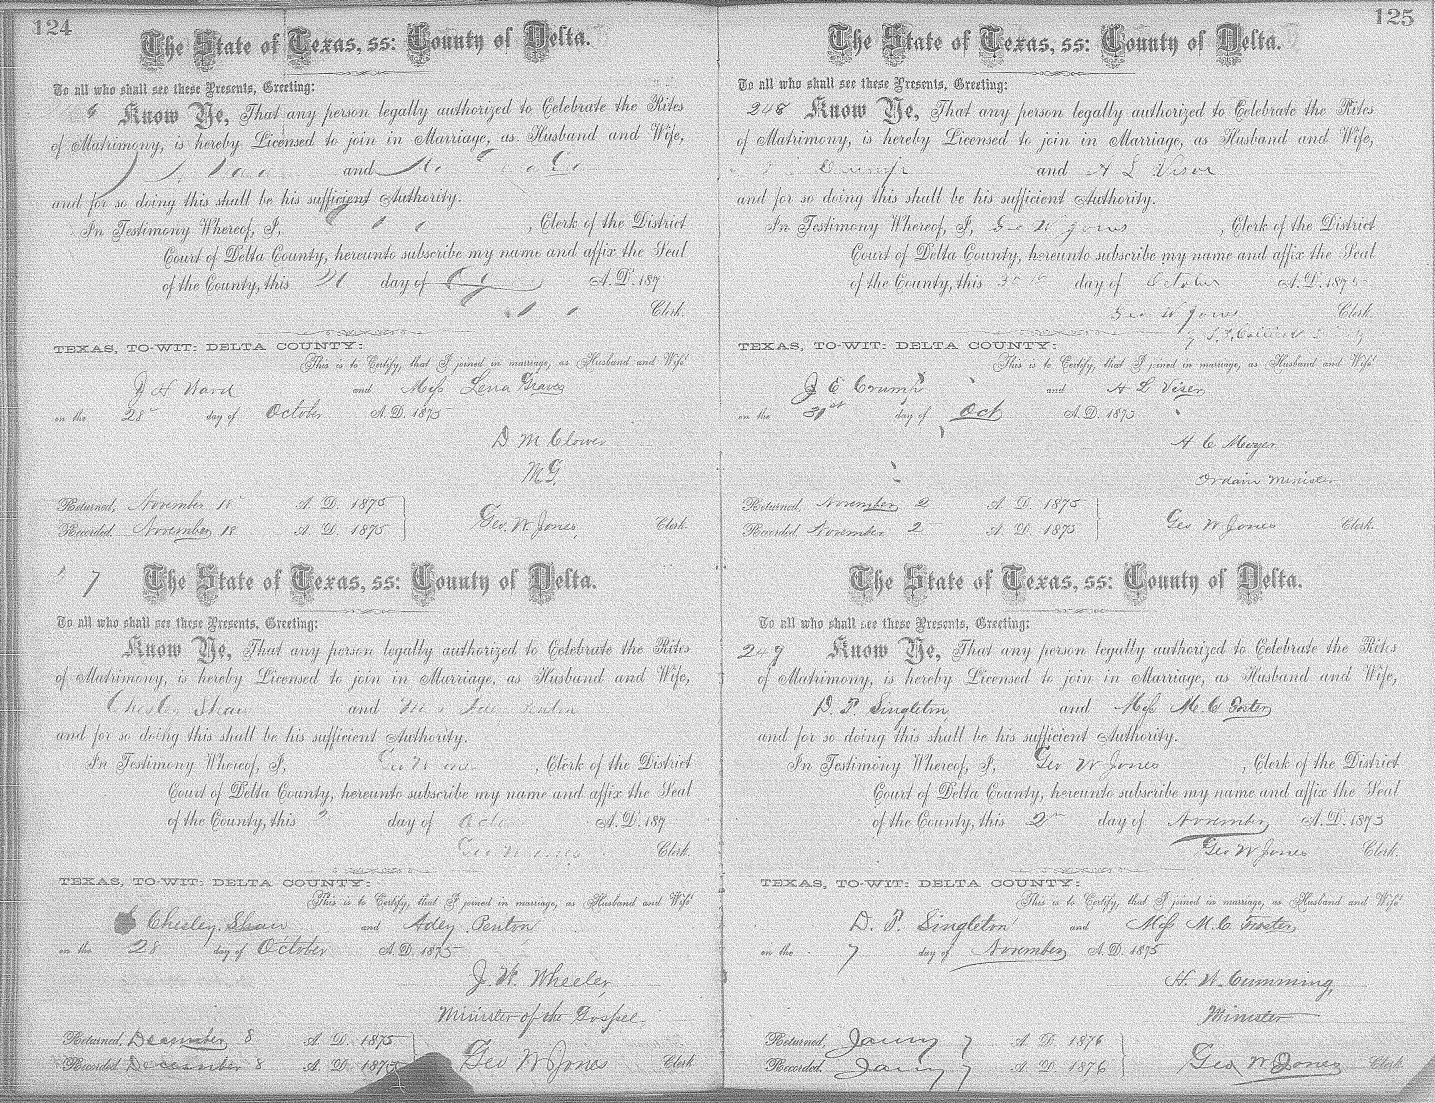 124
The State of Texas, ss: County of Delta.
To all who shall see these Presents, Greeting:
6 Know Ye, That any person legally authorized to Celebrate the Rites
of Matrimony, is hereby Licensed to join in Marriage, as Husband and Wife,
and
and for so doing this shall be his sufficient Authority.
In Testimony Whereof, I, , Clerk of the District
Court of Delta County, hereunto subscribe my name and affix the Seal
of the County, this day of A. D. 187
Clerk.
TEXAS, TO-WIT: DELTA COUNTY:
This is to Certify, that I joined in marriage, as Husband and Wife
J H Ward and Miss Lena Graves
on the 28 day of October A. D. 1875
D M Clower
M G.
Returned, November 18 A. D. 1875
Recorded, November 18 A. D. 1875
Geo. W Jones, Clerk.
7 The State of Texas, ss: County of Delta.
To all who shall see these Presents, Greeting:
Know Ye, That any person legally authorized to Celebrate the Rites
of Matrimony, is hereby Licensed to join in Marriage, as Husband and Wife,
Shaw and
and for so doing this shall be his sufficient Authority.
In Testimony Whereof, I, Geo W , Clerk of the District
Court of Delta County, hereunto subscribe my name and affix the Seal
of the County, this day of A. D. 187
Geo W Clerk.
TEXAS, TO-WIT: DELTA COUNTY:
This is to Certify, that I joined in marriage, as Husband and Wife
Chesley Shaw and Adey Penton
on the 28 day of October A. D. 1875
J. W. Wheeler,
Minister of the Gospel.
Returned, December 8 A. D. 1875
Recorded, December 8 A. D. 1875
Geo W Jones Clerk
125
The State of Texas, ss: County of Delta.
To all who shall see these Presents, Greeting:
248 Know Ye, That any person legally authorized to Celebrate the Rites
of Matrimony, is hereby Licensed to join in Marriage, as Husband and Wife,
and A L Viser
and for so doing this shall be his sufficient Authority.
In Testimony Whereof, I, Geo W Jones , Clerk of the District
Court of Delta County, hereunto subscribe my name and affix the Seal
of the County, this 30 day of October A. D. 1875
Geo W Jones Clerk.
TEXAS, TO-WIT: DELTA COUNTY:
This is to Certify, that I joined in marriage, as Husband and Wife
J E Crump and A L Viser
on the 31st day of Oct A. D. 1875
H C Moyer
Ordain Minister
Returned, November 2 A. D. 1875
Recorded, November 2 A. D. 1875
Geo W Jones Clerk.
The State of Texas, ss: County of Delta.
To all who shall see these Presents, Greeting:
249 Know Ye, That any person legally authorized to Celebrate the Rites
of Matrimony, is hereby Licensed to join in Marriage, as Husband and Wife,
D. P. Singleton and Miss M. C Foster
and for so doing this shall be his sufficient Authority.
In Testimony Whereof, I, Geo W Jones , Clerk of the District
Court of Delta County, hereunto subscribe my name and affix the Seal
of the County, this 2 day of November A. D. 1875
Geo W Jones Clerk.
TEXAS, TO-WIT: DELTA COUNTY:
This is to Certify, that I joined in marriage, as Husband and Wife
D. P. Singleton and Miss M. C. Foster
on the 7 day of November A. D. 1875
H. W. Cumming,
Minister
Returned, Jany 7 A. D. 1876
Recorded, Jany 7 A. D. 1876
Geo W Jones Clerk.